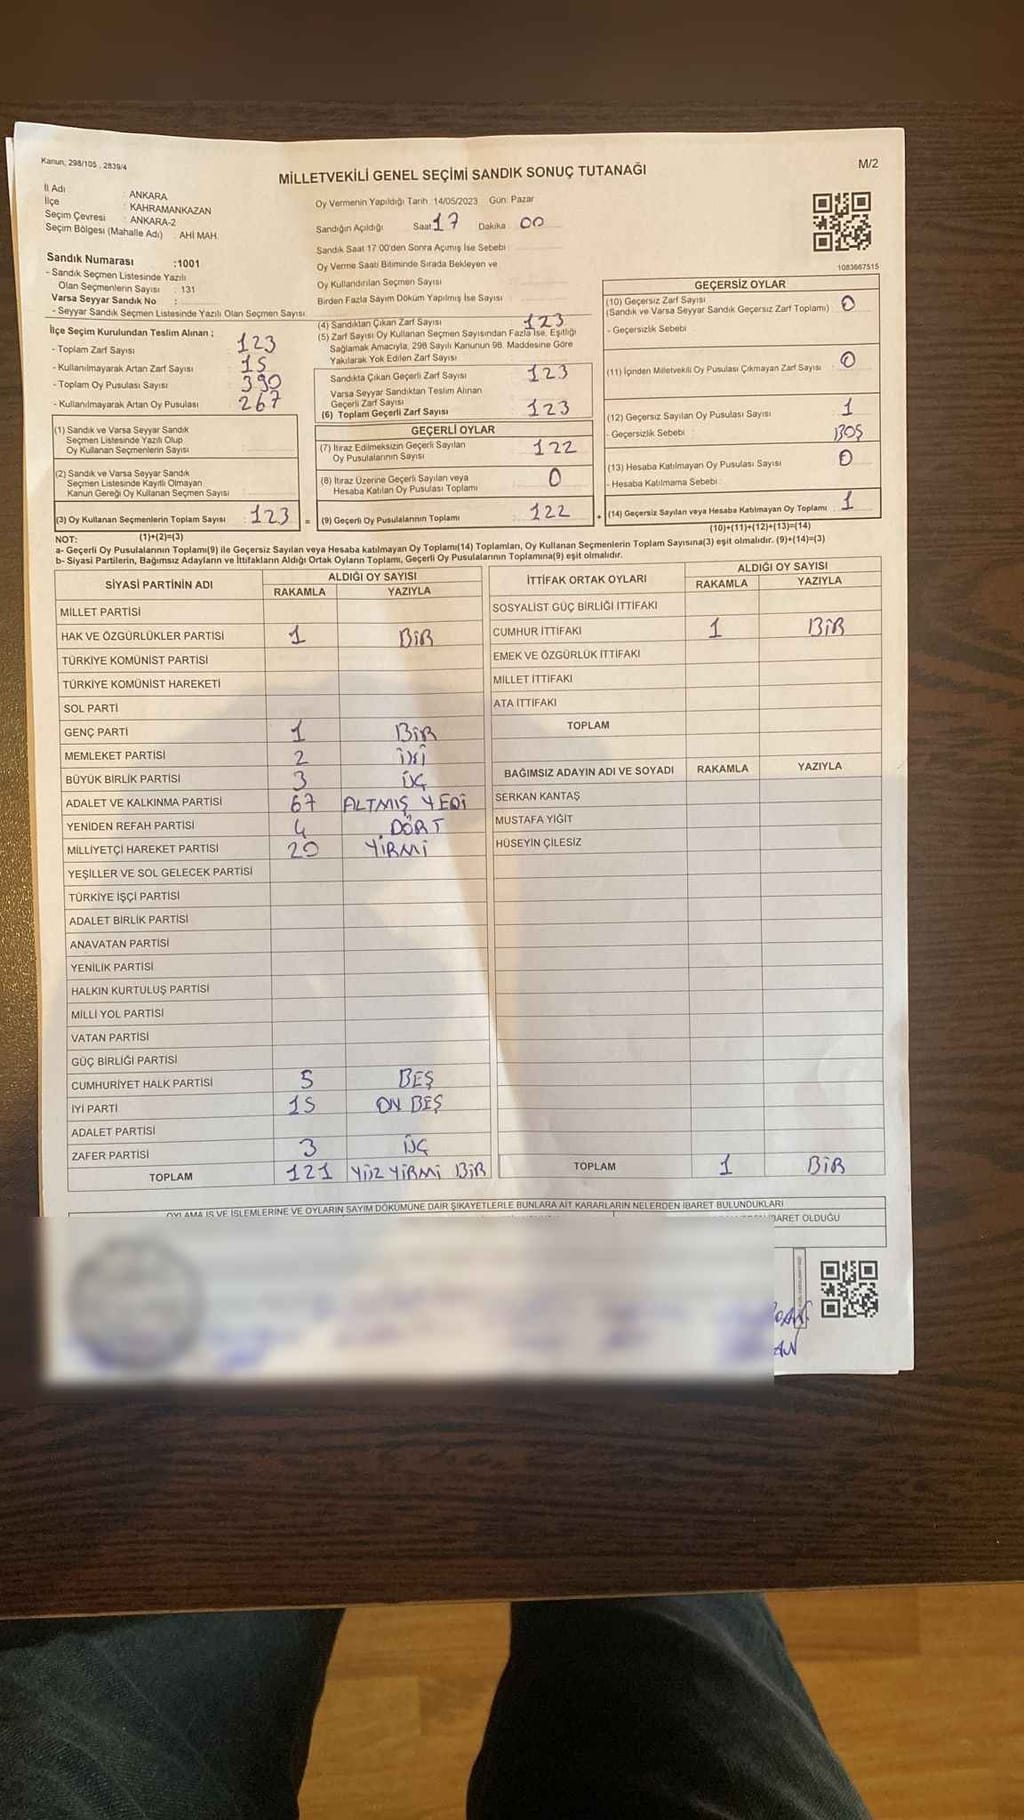 Kanun: 298/105 , 2839/4
M/2
MİLLETVEKİLİ GENEL SEÇİMİ SANDIK SONUÇ TUTANAĞI
İl Adı : ANKARA
İlçe : KAHRAMANKAZAN
Seçim Çevresi : ANKARA-2
Seçim Bölgesi (Mahalle Adı) : AHİ MAH.
Sandık Numarası :1001
- Sandık Seçmen Listesinde Yazılı
Olan Seçmenlerin Sayısı : 131
Varsa Seyyar Sandık No :
- Seyyar Sandık Seçmen Listesinde Yazılı Olan Seçmen Sayısı
Oy Vermenin Yapıldığı Tarih 14/05/2023 Gün: Pazar
Sandığın Açıldığı Saat 17 Dakika 00
Sandık Saat 17:00'den Sonra Açımış İse Sebebi
Oy Verme Saati Bitiminde Sırada Bekleyen ve
Oy Kullandırılan Seçmen Sayısı
Birden Fazla Sayım Döküm Yapılmış İse Sayısı
1083667515
İlçe Seçim Kurulundan Teslim Alınan ;
- Toplam Zarf Sayısı 123
- Kullanılmayarak Artan Zarf Sayısı 15
- Toplam Oy Pusulası Sayısı 390
- Kullanılmayarak Artan Oy Pusulası 267
(1) Sandık ve Varsa Seyyar Sandık
Seçmen Listesinde Yazılı Olup
Oy Kullanan Seçmenlerin Sayısı
(2) Sandık ve Varsa Seyyar Sandık
Seçmen Listesinde Kayıtlı Olmayan
Kanun Gereği Oy Kullanan Seçmen Sayısı
(3) Oy Kullanan Seçmenlerin Toplam Sayısı 123 =
(1)+(2)=(3)
(4) Sandıktan Çıkan Zarf Sayısı 123
(5) Zarf Sayısı Oy Kullanan Seçmen Sayısından Fazla İse, Eşitliği
Sağlamak Amacıyla, 298 Sayılı Kanunun 98. Maddesine Göre
Yakılarak Yok Edilen Zarf Sayısı
Sandıkta Çıkan Geçerli Zarf Sayısı 123
Varsa Seyyar Sandıktan Teslim Alınan
Geçerli Zarf Sayısı
(6) Toplam Geçerli Zarf Sayısı 123
GEÇERLİ OYLAR
(7) İtiraz Edilmeksizin Geçerli Sayılan
Oy Pusulalarının Sayısı 122
(8) İtiraz Üzerine Geçerli Sayılan veya
Hesaba Katılan Oy Pusulası Toplamı 0
(9) Geçerli Oy Pusulalarının Toplamı 122 +
GEÇERSİZ OYLAR
(10) Geçersiz Zarf Sayısı
(Sandık ve Varsa Seyyar Sandık Geçersiz Zarf Toplamı) 0
- Geçersizlik Sebebi
(11) İçinden Milletvekili Oy Pusulası Çıkmayan Zarf Sayısı 0
(12) Geçersiz Sayılan Oy Pusulası Sayısı 1
- Geçersizlik Sebebi BOŞ
(13) Hesaba Katılmayan Oy Pusulası Sayısı 0
- Hesaba Katılmama Sebebi
(14) Geçersiz Sayılan veya Hesaba Katılmayan Oy Toplamı 1
(10)+(11)+(12)+(13)=(14)
NOT:
a- Geçerli Oy Pusulalarının Toplamı(9) ile Geçersiz Sayılan veya Hesaba katılmayan Oy Toplamı(14) Toplamları, Oy Kullanan Seçmenlerin Toplam Sayısına(3) eşit olmalıdır. (9)+(14)=(3)
b- Siyasi Partilerin, Bağımsız Adayların ve İttifakların Aldığı Ortak Oyların Toplamı, Geçerli Oy Pusulalarının Toplamına(9) eşit olmalıdır.
SİYASİ PARTİNİN ADI ALDIĞI OY SAYISI
RAKAMLA YAZIYLA
MİLLET PARTİSİ
HAK VE ÖZGÜRLÜKLER PARTİSİ 1 BİR
TÜRKİYE KOMÜNİST PARTİSİ
TÜRKİYE KOMÜNİST HAREKETİ
SOL PARTİ
GENÇ PARTİ 1 BİR
MEMLEKET PARTİSİ 2 İKİ
BÜYÜK BİRLİK PARTİSİ 3 ÜÇ
ADALET VE KALKINMA PARTİSİ 67 ALTMIŞ YEDİ
YENİDEN REFAH PARTİSİ 4 DÖRT
MİLLİYETÇİ HAREKET PARTİSİ 20 YİRMİ
YEŞİLLER VE SOL GELECEK PARTİSİ
TÜRKİYE İŞÇİ PARTİSİ
ADALET BİRLİK PARTİSİ
ANAVATAN PARTİSİ
YENİLİK PARTİSİ
HALKIN KURTULUŞ PARTİSİ
MİLLİ YOL PARTİSİ
VATAN PARTİSİ
GÜÇ BİRLİĞİ PARTİSİ
CUMHURİYET HALK PARTİSİ 5 BEŞ
İYİ PARTİ 15 ON BEŞ
ADALET PARTİSİ
ZAFER PARTİSİ 3 ÜÇ
TOPLAM 121 YÜZ YİRMİ BİR
İTTİFAK ORTAK OYLARI ALDIĞI OY SAYISI
RAKAMLA YAZIYLA
SOSYALİST GÜÇ BİRLİĞİ İTTİFAKI
CUMHUR İTTİFAKI 1 BİR
EMEK VE ÖZGÜRLÜK İTTİFAKI
MİLLET İTTİFAKI
ATA İTTİFAKI
TOPLAM
BAĞIMSIZ ADAYIN ADI VE SOYADI RAKAMLA YAZIYLA
SERKAN KANTAŞ
MUSTAFA YİĞİT
HÜSEYİN ÇİLESİZ
TOPLAM 1 BİR
OYLAMA İŞ VE İŞLEMLERİNE VE OYLARIN SAYIM DÖKÜMÜNE DAİR ŞİKAYETLERLE BUNLARA AİT KARARLARIN NELERDEN İBARET BULUNDUKLARI
İBARET OLDUĞU